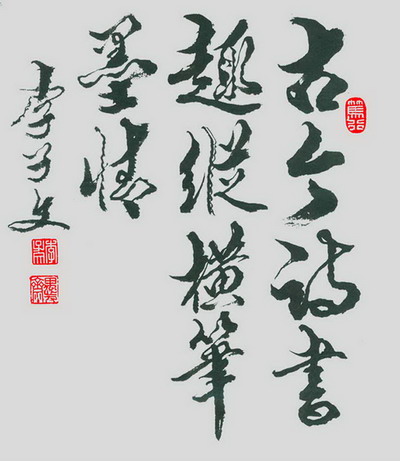 古今诗書
趣縱横筆
墨情
李子文